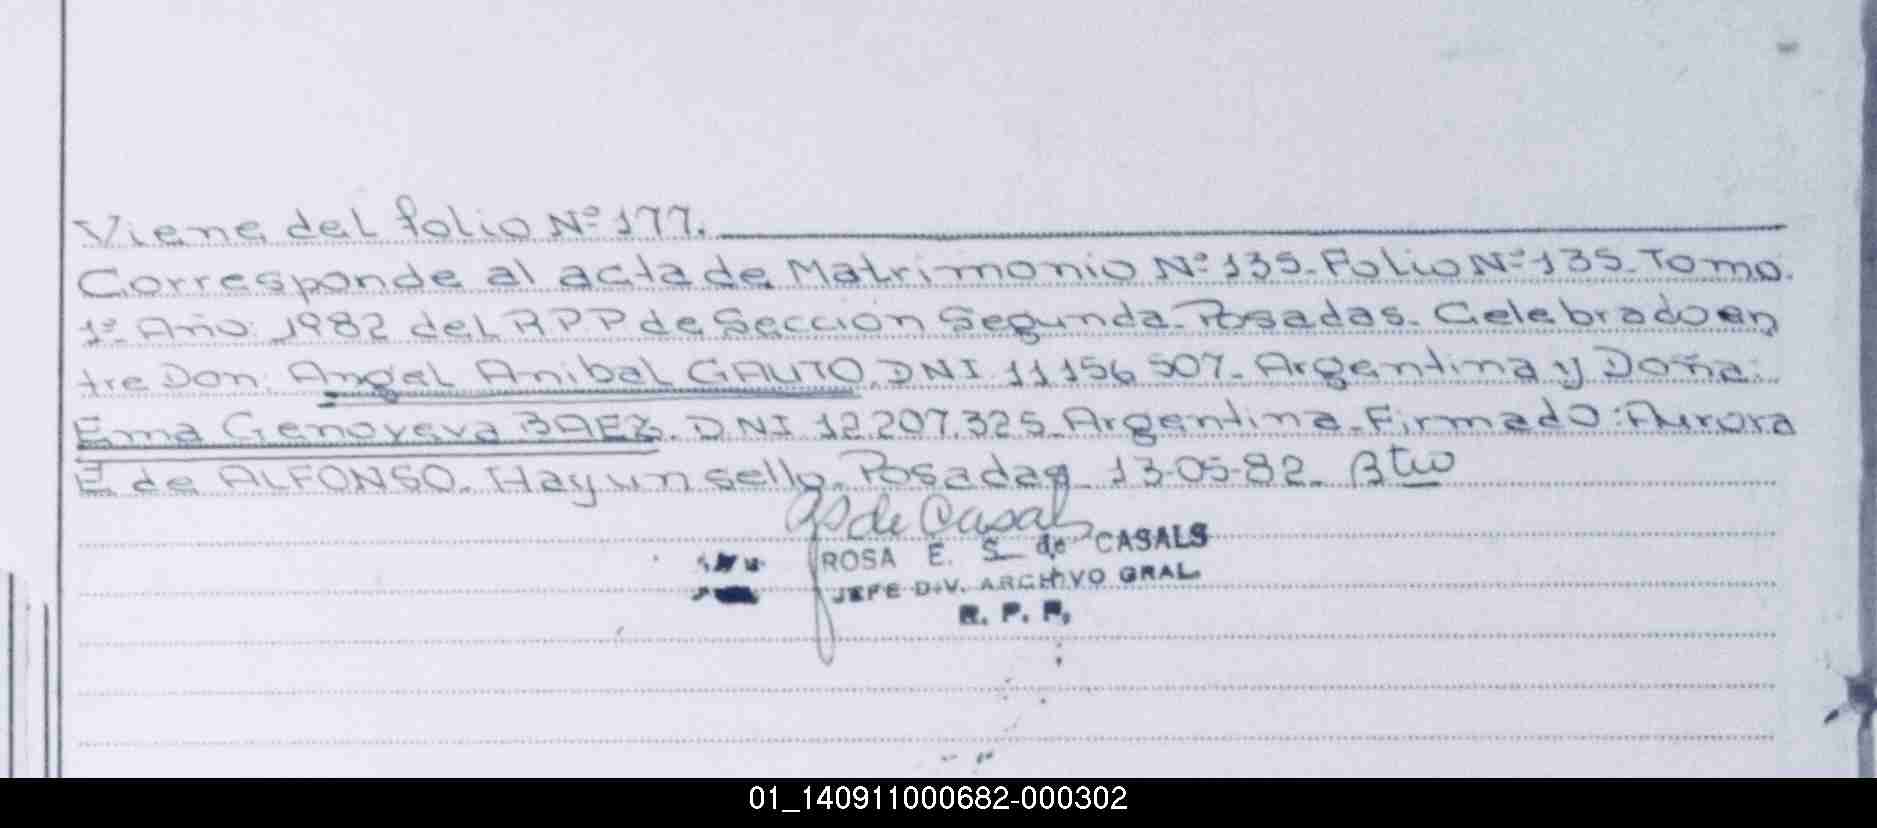 Viene del folio Nº 177.
Corresponde al acta de Matrimonio Nº 135. Folio Nº 135. Tomo.
1º Año: 1982 del RPP de Sección Segunda. Posadas. Celebrado en
tre Don: Angel Anibal GAUTO. DNI 11156507. Argentina y Doña:
Ema Genoveva BAEZ. DNI 12.207.325. Argentina. Firmado: Aurora
E de ALFONSO. Hay un sello. Posadas 13-05-82.
de Casals
ROSA E. S de CASALS
JEFE DIV. ARCHIVO GRAL.
R. P. P.
01_140911000682-000302